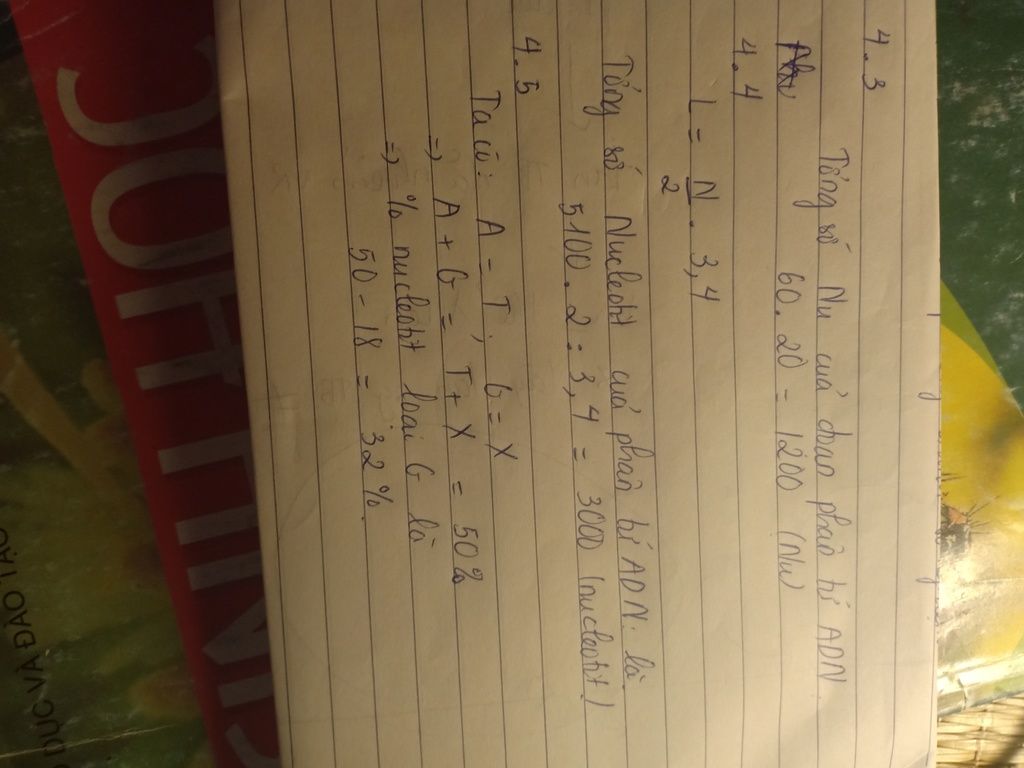 4.3
Tổng số Nu của đoạn phân tử ADN
60.20 = 1200 (Nu)
4.4
L = N/2 . 3,4
Tổng số Nucleotit của phân tử ADN là
5100.2:3,4 = 3000 (nucleotit)
4.5
Ta có: A = T; G = X
=) A + G = T + X = 50%
=) % nucleotit loại G là
50 - 18 = 32%.
DỤC VÀ ĐÀO TẠO